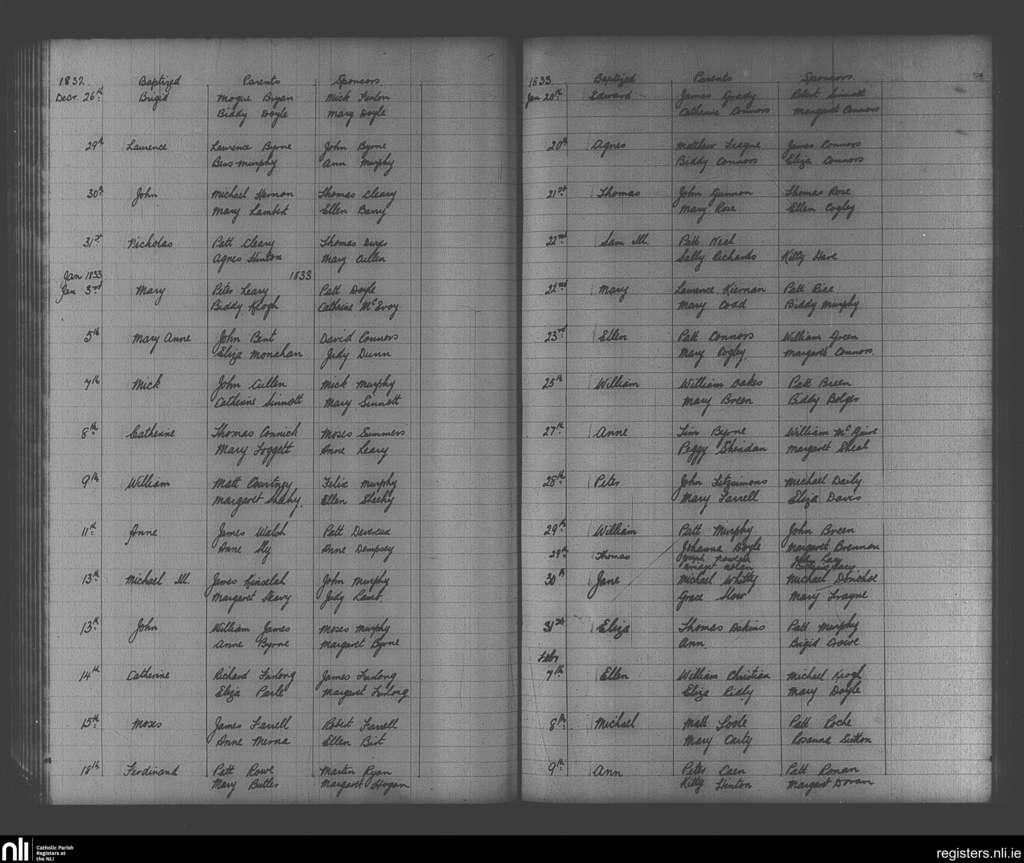 1832 Baptized Parents Sponsors
Decr 26th Brigid Mogue Bryan Mick
Biddy Doyle Mary Doyle
29th Laurence Laurence Byrne John Byrne
Bess Murphy Ann Murphy
30th John Michael Thomas Cleary
Mary Lambert Ellen Barry
31st Nicholas Patt Cleary Thomas
Agnes Hinton Mary Cullen
Jan 1833 1833
Jan 3rd Mary Peter Leary Patt Doyle
Biddy Keogh Catherine McEvoy
5th Mary Anne John Bent David Connors
Eliza Monahan Judy Dunn
7th Mick John Cullen Mick Murphy
Catherine Sinnott Mary Sinnott
8th Catherine Thomas Connick Moses Summers
Mary Foggett Anne Leary
9th William Matt Felix Murphy
Margaret Ellen Sheehy
11th Anne James Walsh Patt Devereux
Anne Anne Dempsey
13th Michael Ill. James Kinselah John Murphy
Margaret Judy
13th John William James Moses Murphy
Anne Byrne Margaret Byrne
14th Catherine Richard Furlong James Furlong
Eliza Parle Margaret Furlong
15th Moses James Farrell Robert Farrell
Anne Merna Ellen
18th Ferdinand Patt Rowe Martin Ryan
Mary Butler Margaret Hogan
1833 Baptized Parents Sponsors
Jan 20th Edward James Grady Robert Sinnott
Catherine Connors Margaret Connors
20th Agnes Matthew Teague James Connors
Biddy Connors Eliza Connors
21st Thomas John Gannon Thomas Rose
Mary Rose Ellen Cogley
22nd Sam Ill. Patt Neal
Sally Richards Kitty Hare
22nd Mary Laurence Kiernan Patt Rice
Mary Codd Biddy Murphy
23rd Ellen Patt Connors William Green
Mary Cogley Margaret Connors
25th William William Oakes Patt Breen
Mary Breen Biddy Bolger
27th Anne Jim Byrne William
Peggy Sheridan Margaret
28th Peter John Fitzsimons Michael Daily
Mary Farrell Eliza Davis
29th William Patt Murphy John Breen
Johanna Doyle Margaret Brennan
28th Thomas
30th Jane Michael Whitty Michael Donohoe
Grace Mary
31st Eliza Thomas Patt Murphy
Ann Brigid
Febr
7th Ellen William Christian Michael Keogh
Eliza Ridly Mary Doyle
8th Michael Matt Patt Roche
Mary Carty Rosanna Sutton
9th Ann Peter Caen Patt Ronan
Kitty Hinton Margaret Doran
nli Catholic Parish
Registers at
the NLI
registers.nli.ie